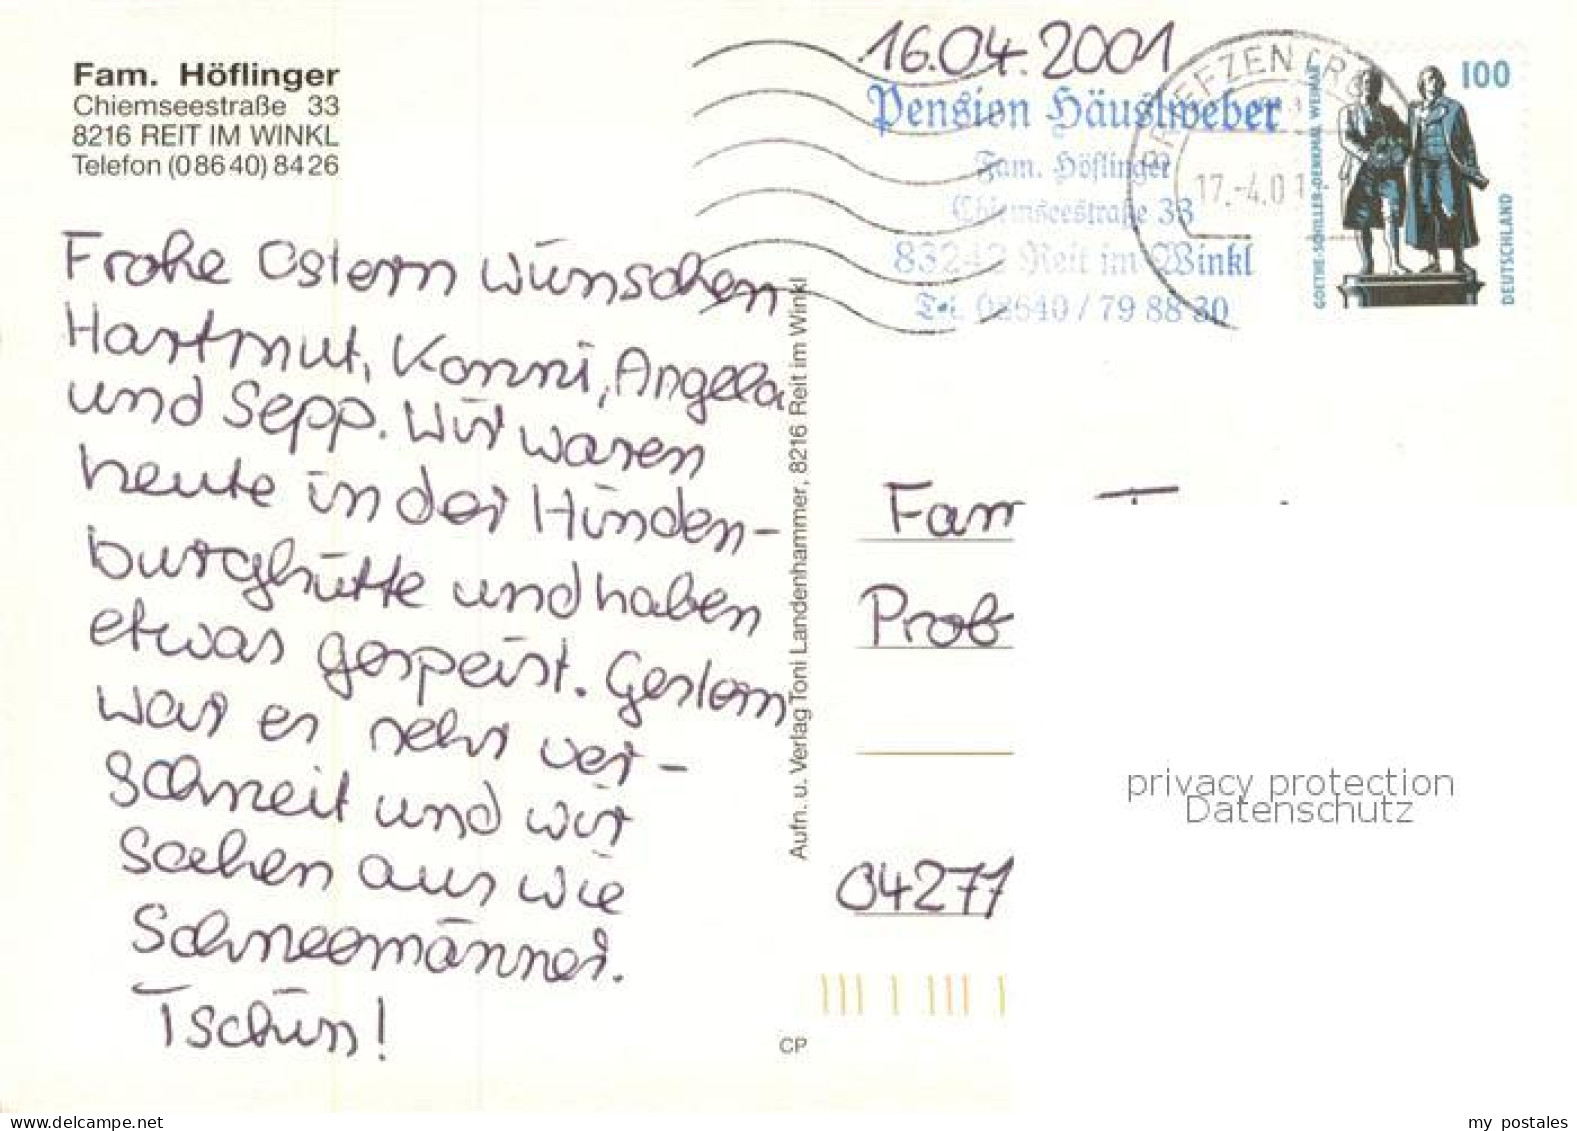 Fam. Höflinger
Chiemseestraße 33
8216 REIT IM WINKL
Telefon (08640) 8426
16.04.2001
Pension Häuslweber
Fam. Höflinger
Chiemseestraße 33
83242 Reit im Winkl
Tel. 08640 / 79 88 30
BRIEFZENTR
17.-4.01
100
GOETHE-SCHILLER-DENKMAL WEIMAR
DEUTSCHLAND
Frohe Ostern wünschen
Hartmut, Konni, Angela
und Sepp. Wir waren
heute in der Hinden-
burghütte und haben
etwas gespeist. Gestern
war es sehr ver-
schneit und wir
sahen aus wie
Schneemänner.
Tschüss!
Aufn. u. Verlag Toni Landenhammer, 8216 Reit im Winkl
CP
Fam
Prob
04277
privacy protection
Datenschutz
www.delcampe.net
my_postales